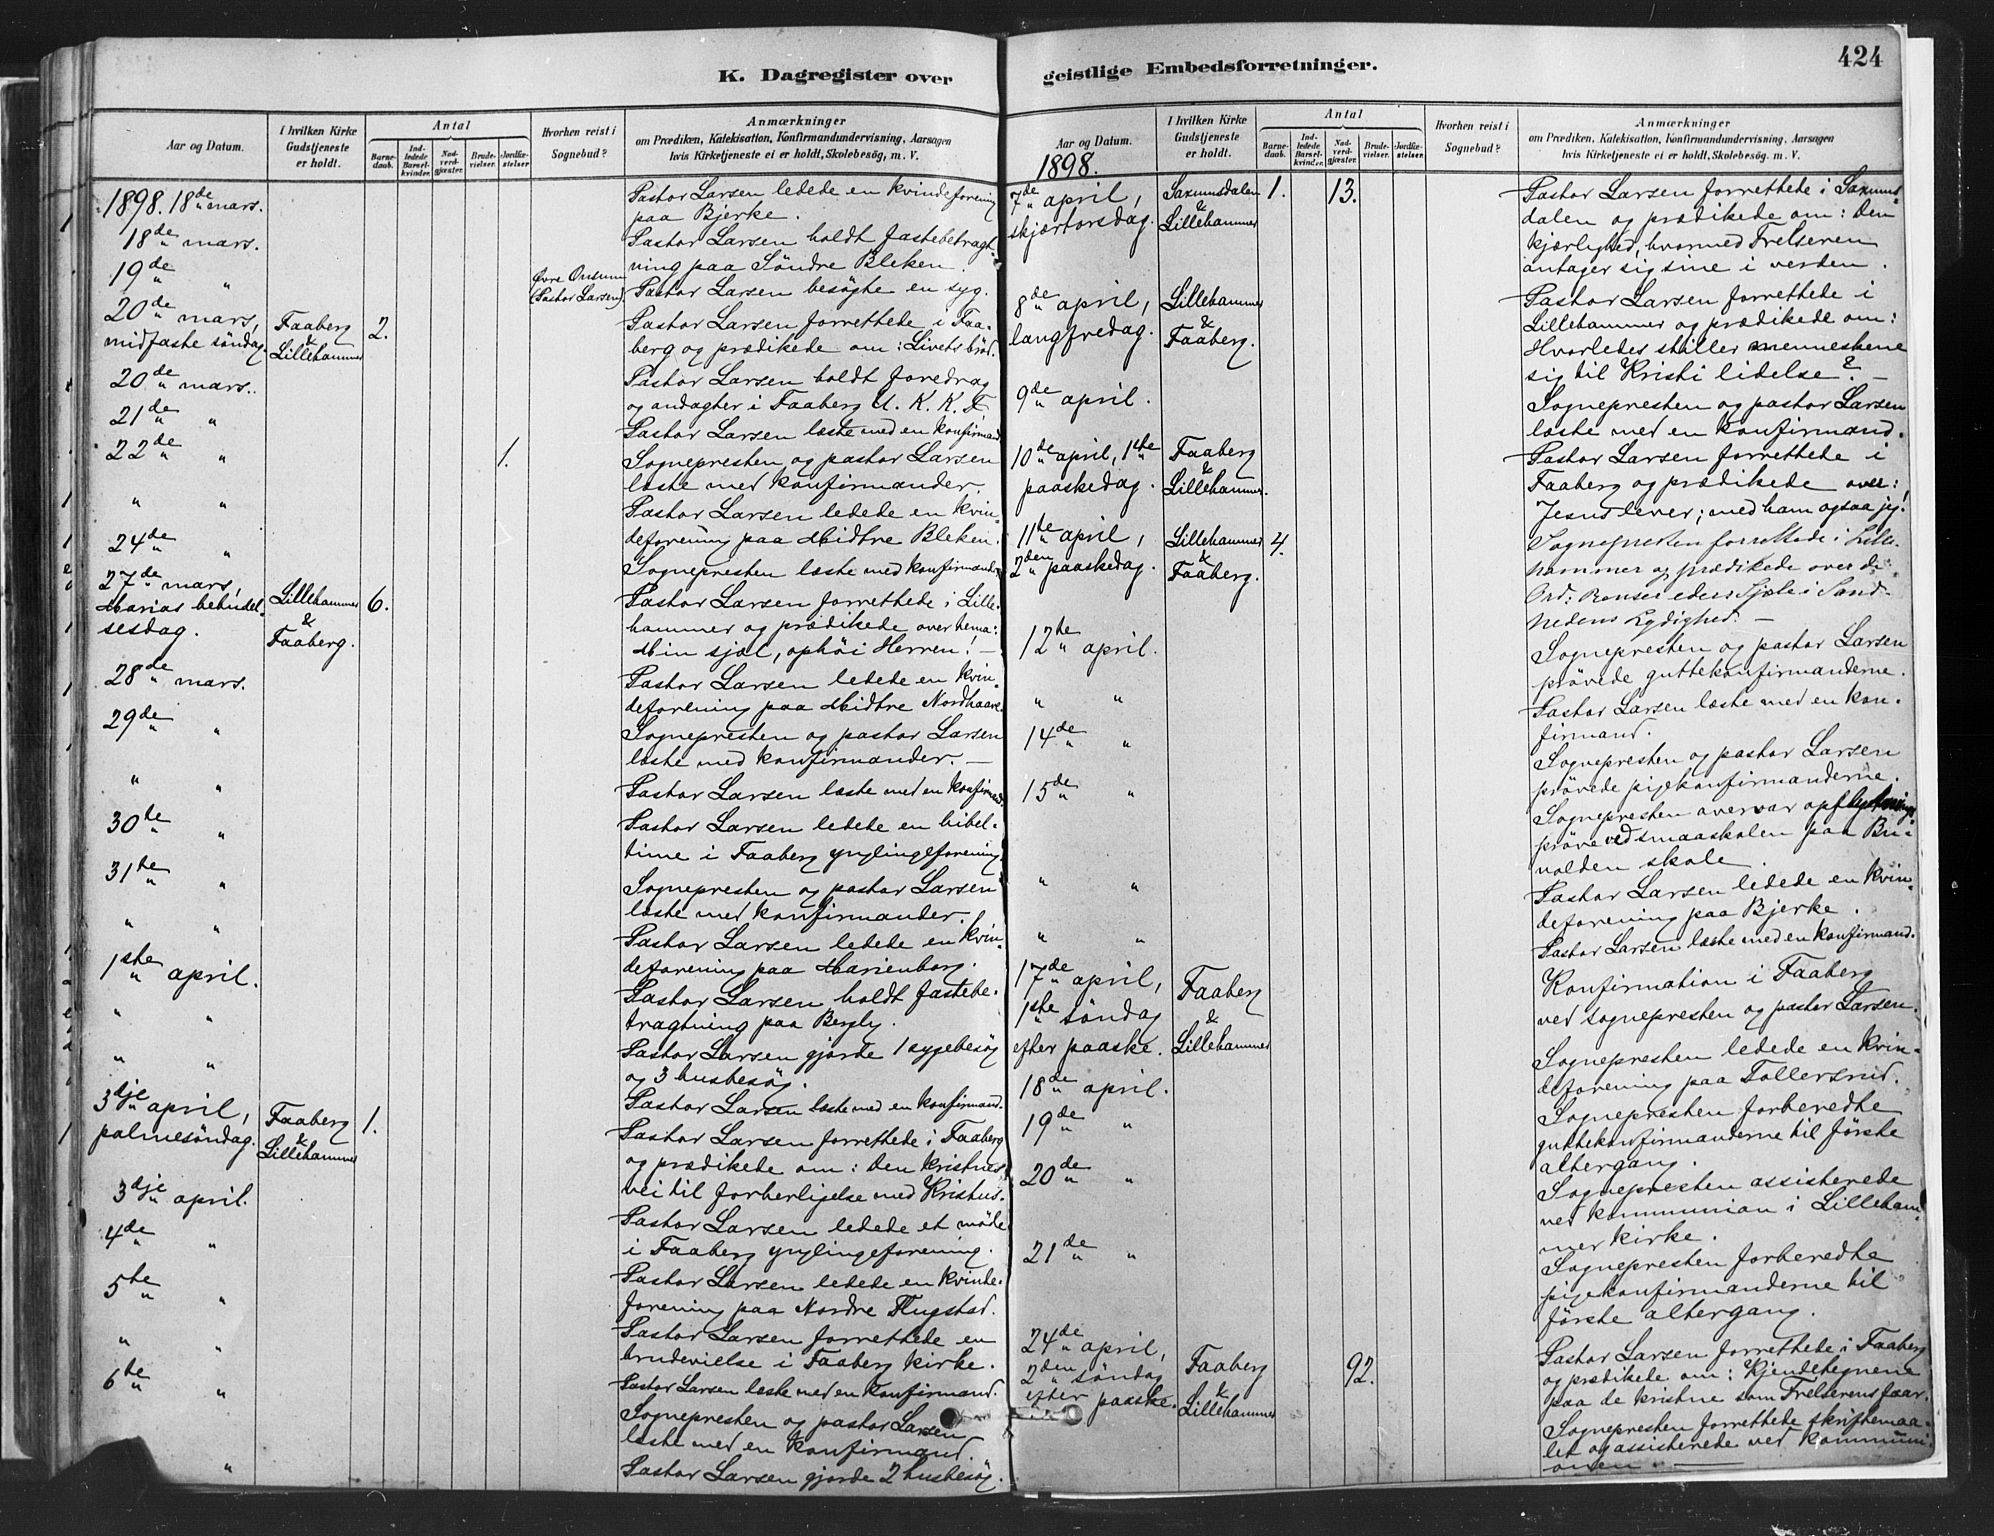 K. Dagregister over
Aar og Datum.
I hvilken Kirke Gudstjeneste er holdt.
Antal
Barnedaab.
Indledede Barselkvinder.
Nadverdgjæster.
Brudevielser.
Jordfæstelser.
Hvorhen reist i Sognebud?
Anmærkninger
om Prædiken, Katekisation, Konfirmandundervisning, Aarsagen
hvis Kirketjeneste ei er holdt, Skolebesøg, m. V.
1898. 18de mars.
Pastor Larsen ledede en kvindeforening
paa Bjerke.
18de mars.
Pastor Larsen holdt fastebetragt-
ning paa Søndre Bleken.
19de "
Øvre Onsum
(Pastor Larsen).
Pastor Larsen besøgte en syg.
20de mars,
midfaste søndag.
Faaberg
&
Lillehammer
2.
Pastor Larsen forrettede i Faa-
berg og prædikede om: Livets brød.
20de mars.
Pastor Larsen holdt foredrag
og andagter i Faaberg U. K. K. F.
21de "
Pastor Larsen læste med en konfirmand
22de "
1.
Sognepresten og pastor Larsen
læste med konfirmander.
" "
Pastor Larsen ledede en kvin-
deforening paa Midtre Bleken.
24de "
Sognepresten læste med konfirmander
27de mars,
Marias bebudel-
sesdag.
Lillehammer
&
Faaberg.
6.
Pastor Larsen forrettede i Lille-
hammer og prædikede over tema:
Min sjæl, ophøi Herren! —
28de mars.
Pastor Larsen ledede en kvin-
deforening paa Midtre Nordhaare.
29de "
Sognepresten og pastor Larsen
læste med konfirmander. —
" "
Pastor Larsen læste med en konfirmand
30te "
Pastor Larsen ledede en bibel-
time i Faaberg ynglingeforening.
31te "
Sognepresten og pastor Larsen
læste med konfirmander.
" "
Pastor Larsen ledede en kvin-
deforening paa Marienborg.
1ste april.
Pastor Larsen holdt fastebe-
tragtning paa Bergly.
" "
Pastor Larsen gjorde 1 sygebesøg
og 3 husbesøg.
" "
Pastor Larsen læste med en konfirmand.
3dje april,
palmesøndag.
Faaberg
&
Lillehammer
1.
Pastor Larsen forrettede i Faaberg
og prædikede om: den kristnes
vei til forherligelse med Kristus.
3dje april.
Pastor Larsen ledede et møde
i Faaberg ynglingeforening.
4de "
Pastor Larsen ledede en kvinde-
forening paa Nordre Flugstad.
5te "
Pastor Larsen forrettede en
brudevielse i Faaberg kirke.
" "
Pastor Larsen læste med en konfirmand.
6te "
Sognepresten og pastor Larsen
læste med en konfirmand.
"
Pastor Larsen gjorde 2 husbesøg.
geistlige Embedsforretninger.
424
Aar og Datum.
1898.
I hvilken Kirke Gudstjeneste er holdt.
Antal
Barnedaab.
Indledede Barselkvinder.
Nadverdgjæster.
Brudevielser.
Jordfæstelser.
Hvorhen reist i Sognebud?
Anmærkninger
om Prædiken, Katekisation, Konfirmandundervisning, Aarsagen
hvis Kirketjeneste ei er holdt, Skolebesøg, m. V.
7de april,
skjærtorsdag.
Saxumsdalen
&
Lillehammer
1.
13.
Pastor Larsen forrettede i Saxums-
dalen og prædikede om: den
kjærlighed, hvormed Frelseren
antager sig sine i verden.
8de april,
langfredag.
Lillehammer
&
Faaberg.
Pastor Larsen forrettede i
Lillehammer og prædikede om:
Hvorledes stiller menneskene
sig til Kristi lidelse? —
9de april.
Sognepresten og pastor Larsen
læste med en konfirmand.
10de april, 1ste
paaskedag.
Faaberg
&
Lillehammer.
Pastor Larsen forrettede i
Faaberg og prædikede over:
Jesus lever; med ham ogsaa jeg!
11te april,
2den paaskedag.
Lillehammer
&
Faaberg.
4.
Sognepresten forrettede i Lille-
hammer og prædikede over de
Ord: Renser eders Sjæle i Sand-
hedens Lydighed. —
12te april.
Sognepresten og pastor Larsen
prøvede guttekonfirmanderne.
" "
Pastor Larsen læste med en kon-
firmand.
14de "
Sognepresten og pastor Larsen
prøvede pigekonfirmanderne.
15de "
Sognepresten overvar opflytnings-
prøve ved smaaskolen paa
skole.
" "
Pastor Larsen ledede en kvin-
deforening paa Bjerke.
" "
Pastor Larsen læste med en konfirmand.
17de april,
1ste søndag
efter paaske.
Faaberg
&
Lillehammer
Konfirmation i Faaberg
ved sognepresten og pastor Larsen.
18de april.
Sognepresten ledede en kvin-
deforening paa Tollersrud.
19de "
Sognepresten forberedte
guttekonfirmanderne til første
altergang.
20de "
Sognepresten assisterede
ved kommunion i Lilleham-
mer kirke.
21de "
Sognepresten forberedte
pigekonfirmanderne til
første altergang.
24de april,
2den søndag
efter paaske.
Faaberg
&
Lillehammer
92.
Pastor Larsen forrettede i Faaberg
og prædikede om: Kjendetegnene
paa de kristne som Frelserens faar.
Sognepresten forrettede skriftemaa-
let og assisterede ved kommuni-
onen. —